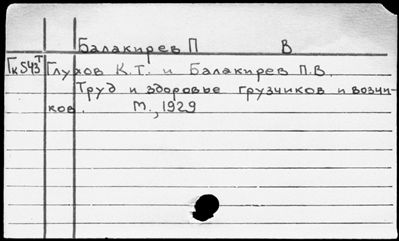 Балакирев П В
Гк543т Глухов К.Т. и Балакирев П.В.
Труд и здоровье грузчиков и возчи-
ков. М., 1929